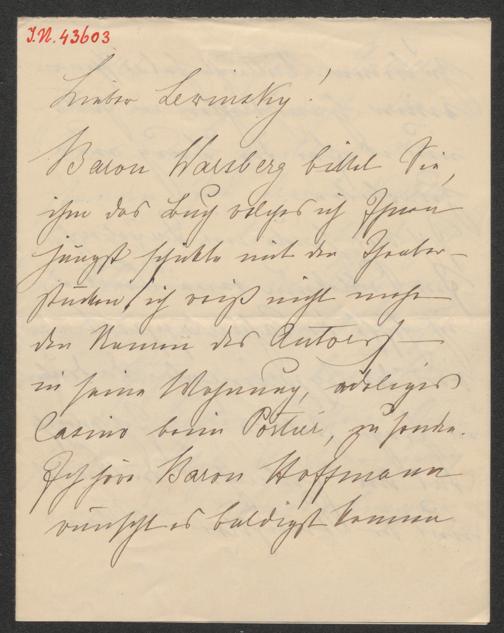 I.N. 43603
Lieber Lewinsky!
Baron Warsberg bittet Sie,
ihm das Buch welches ich Ihnen
jüngst schickte mit den Theater-
stücken (ich weiß nicht mehr
den Namen des Autors)
in seine Wohnung, adeliges
Casino beim Portier, zu senden.
Ich höre Baron Hoffmann
wünscht es baldigst kennen